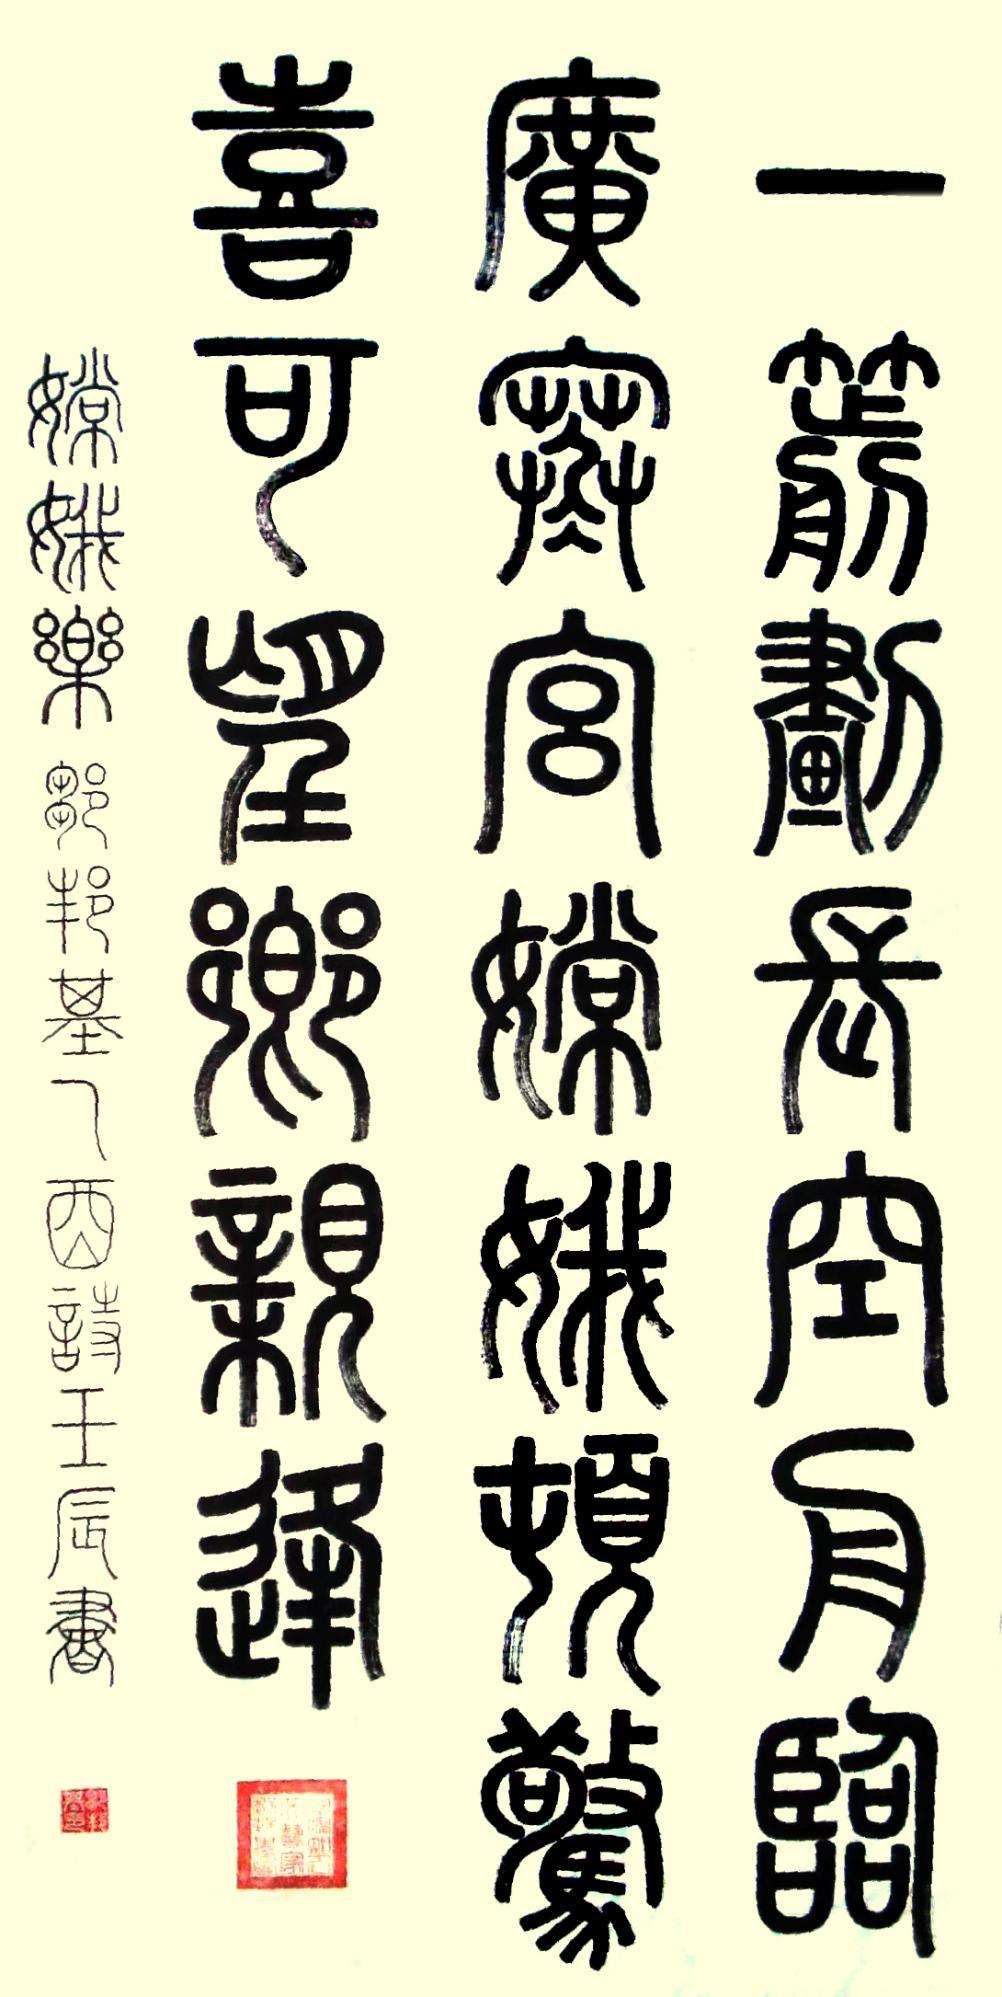 一箭劃長空月臨
廣寒宮嫦娥頓驚
喜可望鄉親逢
嫦娥樂 鄒邦基乙酉詩壬辰書